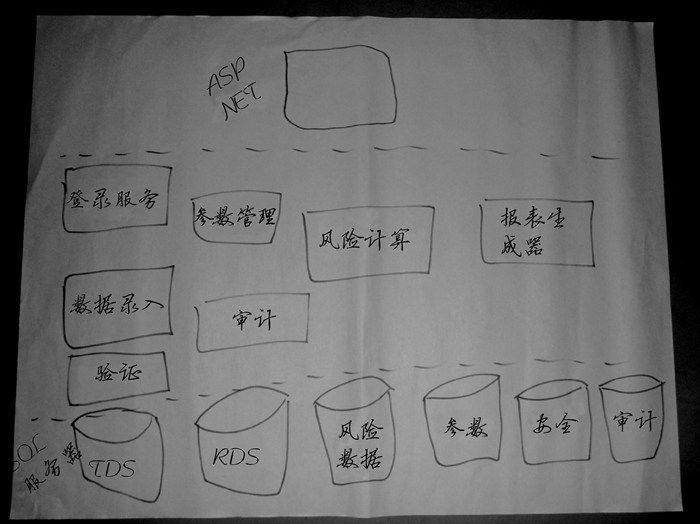 ASP
NET
登录服务
参数管理
风险计算
报表生
成器
数据录入
审计
验证
SQL
服务器
TDS
RDS
风险
数据
参数
安全
审计